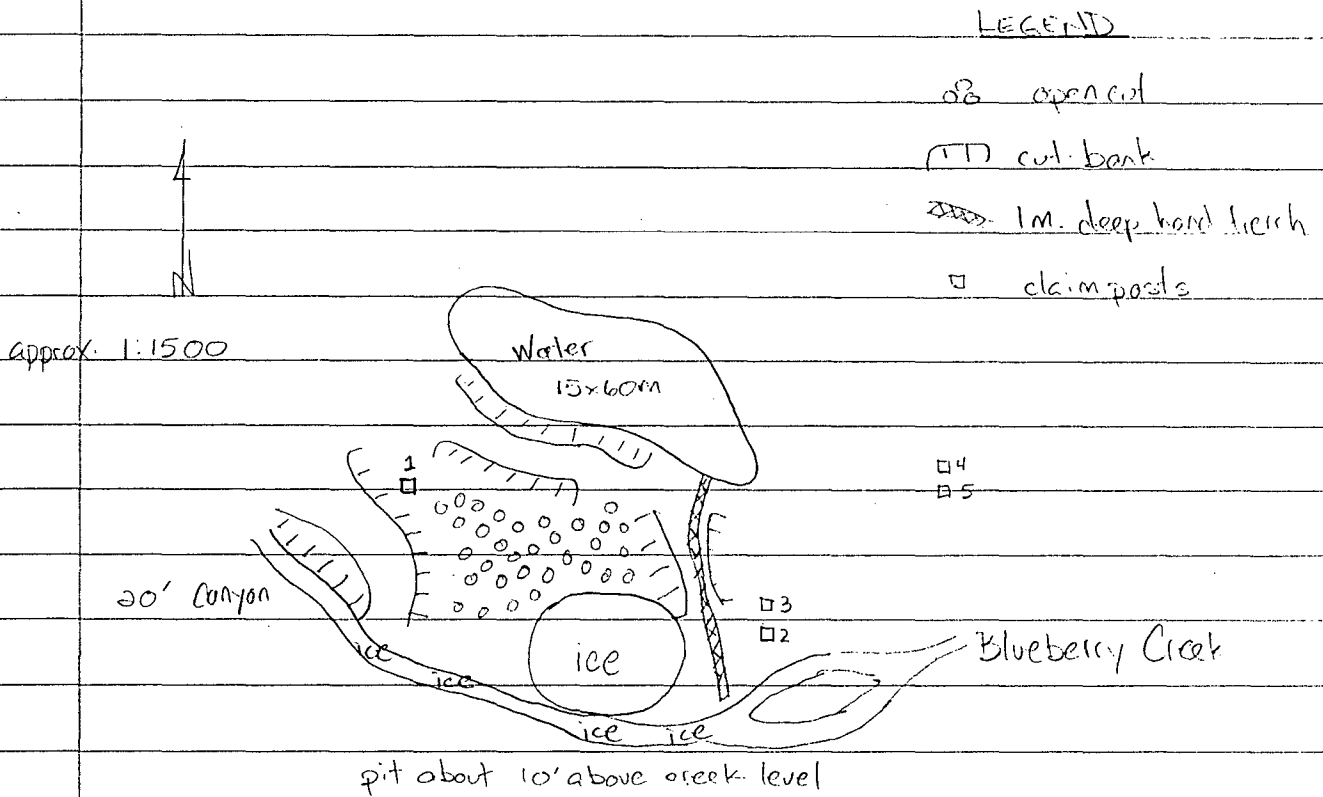 LEGEND
open cut
cut bank
1m. deep hand trench
claim posts
N
approx. 1:1500
Water
15x60m
1
4
5
20' Canyon
3
2
ice
ice
ice
Blueberry Creek
ice
ice
pit about 10' above creek level